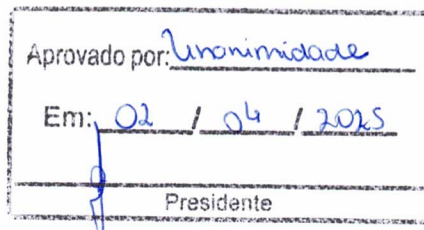 Aprovado por: Unanimidade
Em: 02 / 04 / 2025
Presidente